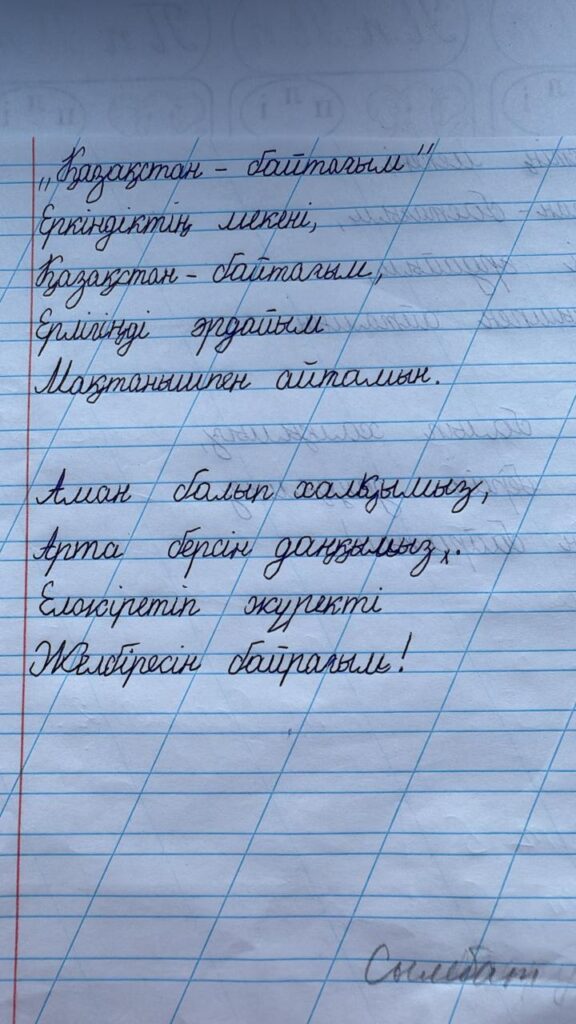 „Қазақстан - байтағым"
Еркіндіктің мекені,
Қазақстан - байтағым,
Ерлігіңді әрдайым
Мақтанышпен айтамын.
Аман болып халқымыз,
Арта берсін даңқымыз,.
Елжіретіп жүректі
Желбіресін байрағым!